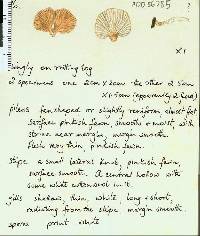 x 1
Singly on rotting log
2 specimens one 2cm x 2cm the other 2.5cm
x 1.5cm (apparently 2 fused)
pileus fan shaped or slightly reniform almost flat
surface pinkish fawn, smooth + moist, with
striae near margin, margin smooth.
flesh very thin, pinkish fawn.
stipe a small lateral knob, pinkish fawn,
surface smooth. A central hollow with
some what extended in it.
gills shallow, thin, white, long + short,
radiating from the stipe margin smooth.
spores print white